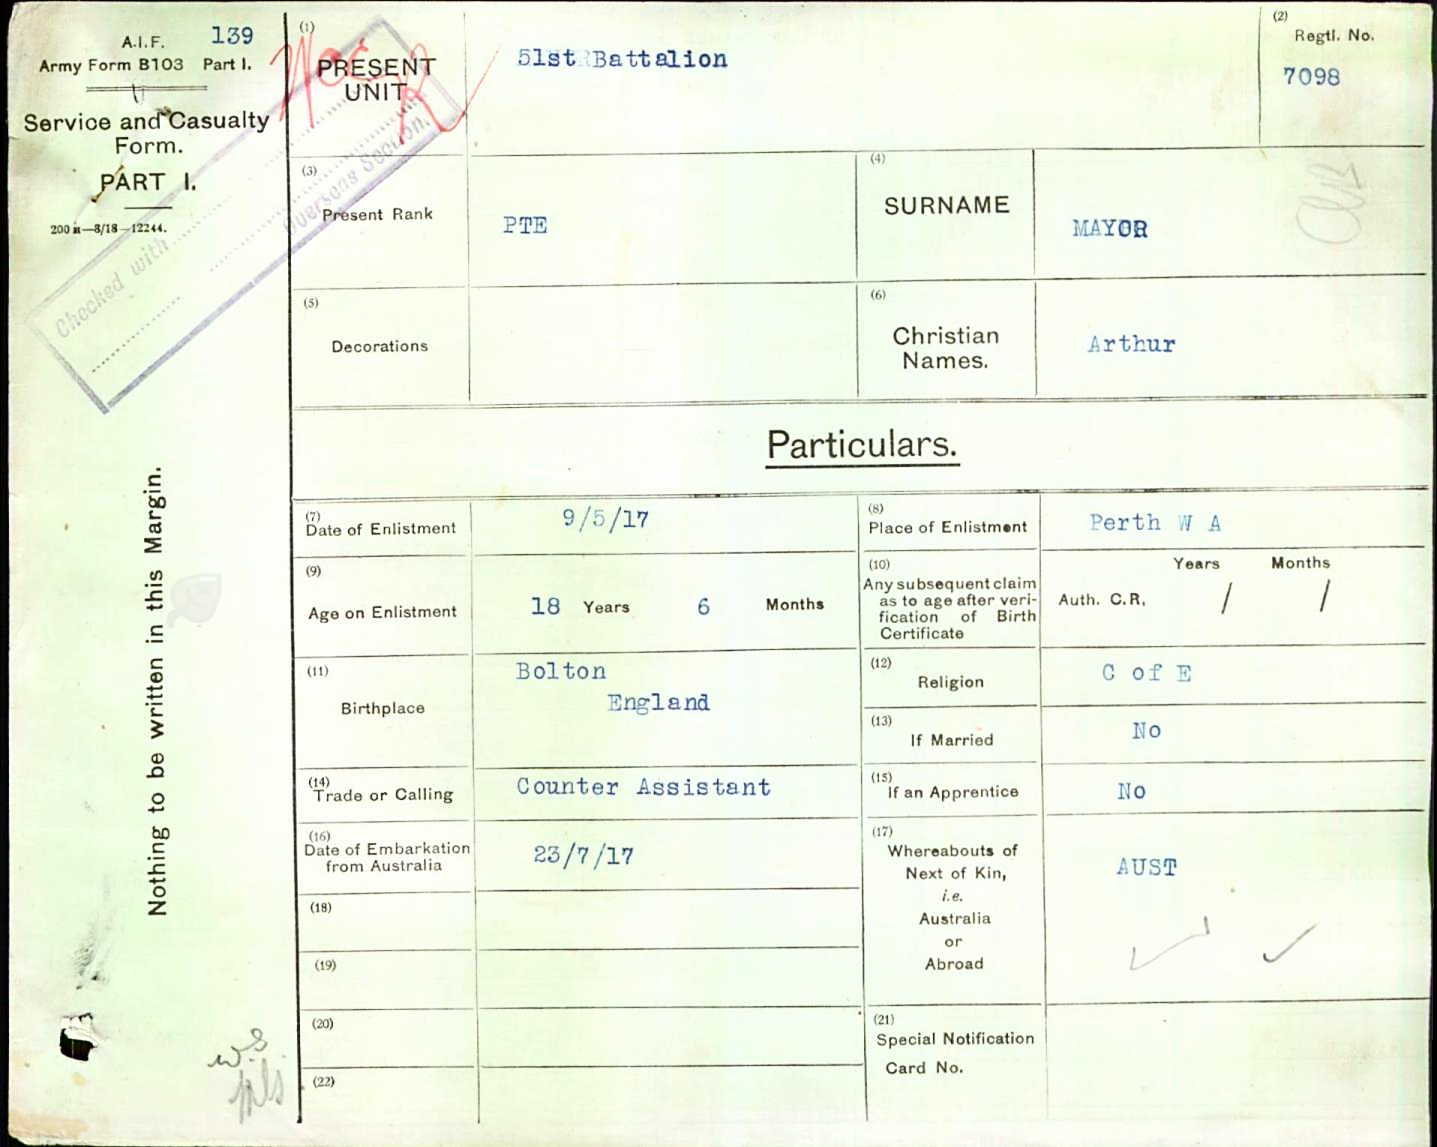 A.I.F. 139
Army Form B103 Part I.
Service and Casualty
Form.
PART I.
200 M—8/18—12244.
Checked with
Overseas Section.
Nothing to be written in this Margin.
(1)
PRESENT
UNIT
51st Battalion
(2)
Regtl. No.
7098
(3)
Present Rank
PTE
(4)
SURNAME
MAYOR
(5)
Decorations
(6)
Christian
Names.
Arthur
Particulars.
(7)
Date of Enlistment
9/5/17
(8)
Place of Enlistment
Perth W A
(9)
Age on Enlistment
18 Years 6 Months
(10)
Any subsequent claim
as to age after veri-
fication of Birth
Certificate
Years Months
Auth. C.R. / /
(11)
Birthplace
Bolton
England
(12)
Religion
C of E
(13)
If Married
No
(14)
Trade or Calling
Counter Assistant
(15)
If an Apprentice
No
(16)
Date of Embarkation
from Australia
23/7/17
(17)
Whereabouts of
Next of Kin,
i.e.
Australia
or
Abroad
AUST
(18)
(19)
(20)
(21)
Special Notification
Card No.
(22)